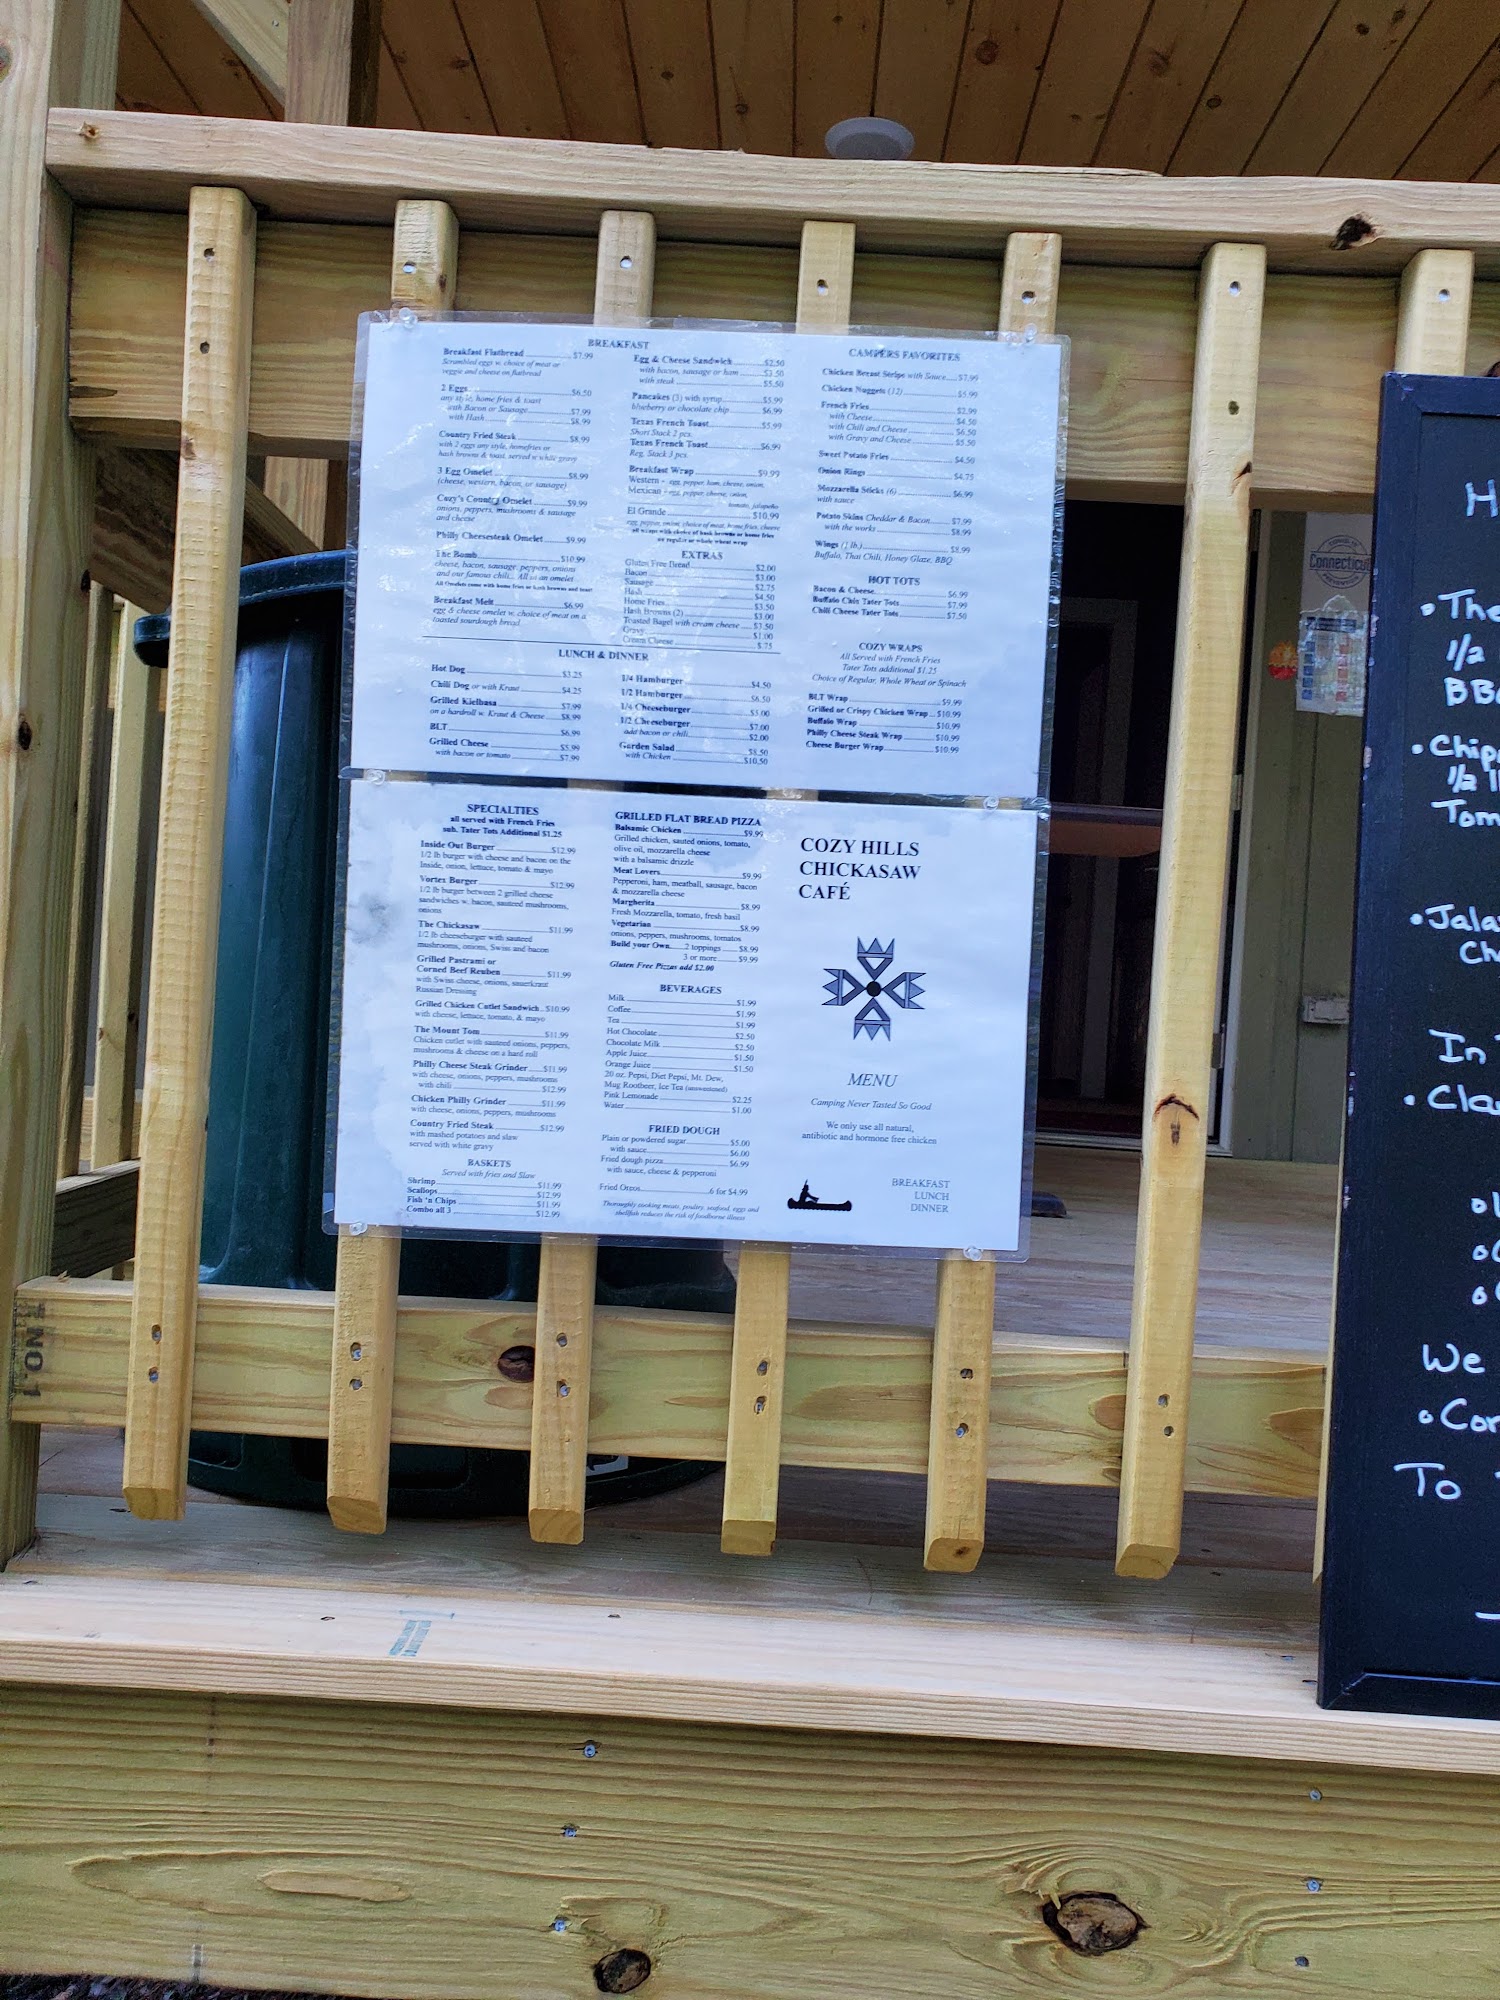 BREAKFAST
Breakfast Flatbread $7.99
Scrambled eggs w. choice of meat or
veggie and cheese on flatbread
2 Eggs $6.50
any style, home fries & toast
with Bacon or Sausage $7.99
with Hash $8.99
Country Fried Steak $8.99
with 2 eggs any style, homefries or
hash browns & toast, served w white gravy
3 Egg Omelet $8.99
(cheese, western, bacon, or sausage)
Cozy's Country Omelet $9.99
onions, peppers, mushrooms & sausage
and cheese
Philly Cheesesteak Omelet $9.99
The Bomb $10.99
cheese, bacon, sausage, peppers, onions
and our famous chili... All in an omelet
All Omelets come with home fries or hash browns and toast
Breakfast Melt $6.99
egg & cheese omelet w. choice of meat on a
toasted sourdough bread
Egg & Cheese Sandwich $2.50
with bacon, sausage or ham $3.50
with steak $5.50
Pancakes (3) with syrup $5.99
blueberry or chocolate chip $6.99
Texas French Toast $5.99
Short Stack 2 pcs.
Texas French Toast $6.99
Reg. Stack 3 pcs.
Breakfast Wrap $9.99
Western - egg, pepper, ham, cheese, onion,
Mexican - egg, pepper, cheese, onion,
tomato, jalapeño
El Grande $10.99
egg, pepper, onion, choice of meat, home fries, cheese
all wraps with choice of hash browns or home fries
on regular or whole wheat wrap
EXTRAS
Gluten Free Bread $2.00
Bacon $3.00
Sausage $2.75
Hash $4.50
Home Fries $3.50
Hash Browns (2) $3.00
Toasted Bagel with cream cheese $3.50
Gravy $1.00
Cream Cheese $.75
CAMPERS FAVORITES
Chicken Breast Strips with Sauce $7.99
Chicken Nuggets (12) $5.99
French Fries $2.99
with Cheese $4.50
with Chili and Cheese $6.50
with Gravy and Cheese $5.50
Sweet Potato Fries $4.50
Onion Rings $4.75
Mozzarella Sticks (6) $6.99
with sauce
Potato Skins Cheddar & Bacon $7.99
with the works $8.99
Wings (1 lb.) $8.99
Buffalo, Thai Chili, Honey Glaze, BBQ
HOT TOTS
Bacon & Cheese $6.99
Buffalo Chix Tater Tots $7.99
Chili Cheese Tater Tots $7.50
COZY WRAPS
All Served with French Fries
Tater Tots additional $1.25
Choice of Regular, Whole Wheat or Spinach
BLT Wrap $9.99
Grilled or Crispy Chicken Wrap $10.99
Buffalo Wrap $10.99
Philly Cheese Steak Wrap $10.99
Cheese Burger Wrap $10.99
LUNCH & DINNER
Hot Dog $3.25
Chili Dog or with Kraut $4.25
Grilled Kielbasa $7.99
on a hardroll w. Kraut & Cheese $8.99
BLT $6.99
Grilled Cheese $5.99
with bacon or tomato $7.99
1/4 Hamburger $4.50
1/2 Hamburger $6.50
1/4 Cheeseburger $5.00
1/2 Cheeseburger $7.00
add bacon or chili $2.00
Garden Salad $8.50
with Chicken $10.50
SPECIALTIES
all served with French Fries
sub. Tater Tots Additional $1.25
Inside Out Burger $12.99
1/2 lb burger with cheese and bacon on the
Inside, onion, lettuce, tomato & mayo
Vortex Burger $12.99
1/2 lb burger between 2 grilled cheese
sandwiches w. bacon, sauteed mushrooms,
onions
The Chickasaw $11.99
1/2 lb cheeseburger with sauteed
mushrooms, onions, Swiss and bacon
Grilled Pastrami or
Corned Beef Reuben $11.99
with Swiss cheese, onions, sauerkraut
Russian Dressing
Grilled Chicken Cutlet Sandwich $10.99
with cheese, lettuce, tomato, & mayo
The Mount Tom $11.99
Chicken cutlet with sauteed onions, peppers,
mushrooms & cheese on a hard roll
Philly Cheese Steak Grinder $11.99
with cheese, onions, peppers, mushrooms
with chili $12.99
Chicken Philly Grinder $11.99
with cheese, onions, peppers, mushrooms
Country Fried Steak $12.99
with mashed potatoes and slaw
served with white gravy
BASKETS
Served with fries and Slaw
Shrimp $11.99
Scallops $12.99
Fish 'n Chips $11.99
Combo all 3 $12.99
GRILLED FLAT BREAD PIZZA
Balsamic Chicken $9.99
Grilled chicken, sauted onions, tomato,
olive oil, mozzarella cheese
with a balsamic drizzle
Meat Lovers $9.99
Pepperoni, ham, meatball, sausage, bacon
& mozzarella cheese
Margherita $8.99
Fresh Mozzarella, tomato, fresh basil
Vegetarian $8.99
onions, peppers, mushrooms, tomatos
Build your Own 2 toppings $8.99
3 or more $9.99
Gluten Free Pizzas add $2.00
BEVERAGES
Milk $1.99
Coffee $1.99
Tea $1.99
Hot Chocolate $2.50
Chocolate Milk $2.50
Apple Juice $1.50
Orange Juice $1.50
20 oz. Pepsi, Diet Pepsi, Mt. Dew,
Mug Rootbeer, Ice Tea (unsweetened)
Pink Lemonade $2.25
Water $1.00
FRIED DOUGH
Plain or powdered sugar $5.00
with sauce $6.00
Fried dough pizza $6.99
with sauce, cheese & pepperoni
Fried Oreos 6 for $4.99
Thoroughly cooking meats, poultry, seafood, eggs and
shellfish reduces the risk of foodborne illness
COZY HILLS
CHICKASAW
CAFÉ
MENU
Camping Never Tasted So Good
We only use all natural,
antibiotic and hormone free chicken
BREAKFAST
LUNCH
DINNER
Connecticut
H
• The
1/2
BB
• Chip
1/2 l
Tom
• Jala
Ch
In
• Cla
We
• Cor
To
NO.1